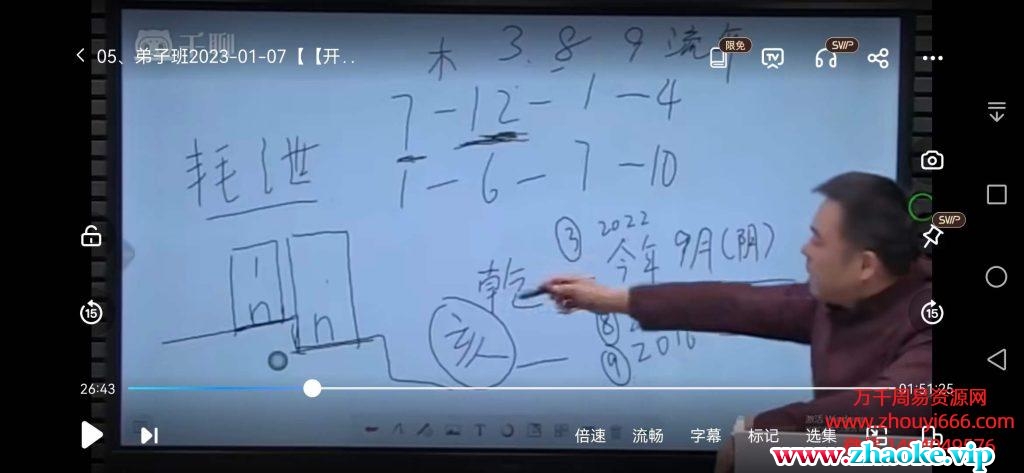 千聊
05、弟子班2023-01-07【【开...
限免
TV
SVIP
木 3. 8 9 流年
7-12-1-4
耗 泄
1-6-7-10
③ 2022
今年 9月(阴)
SVIP
乾
n n
15
15
亥
⑧
⑨ 2016
26:43
01:51:25
万千周易资源网
www.zhouyi666.com
倍速 流畅 字幕 标记 选集
www.zhaoke.vip